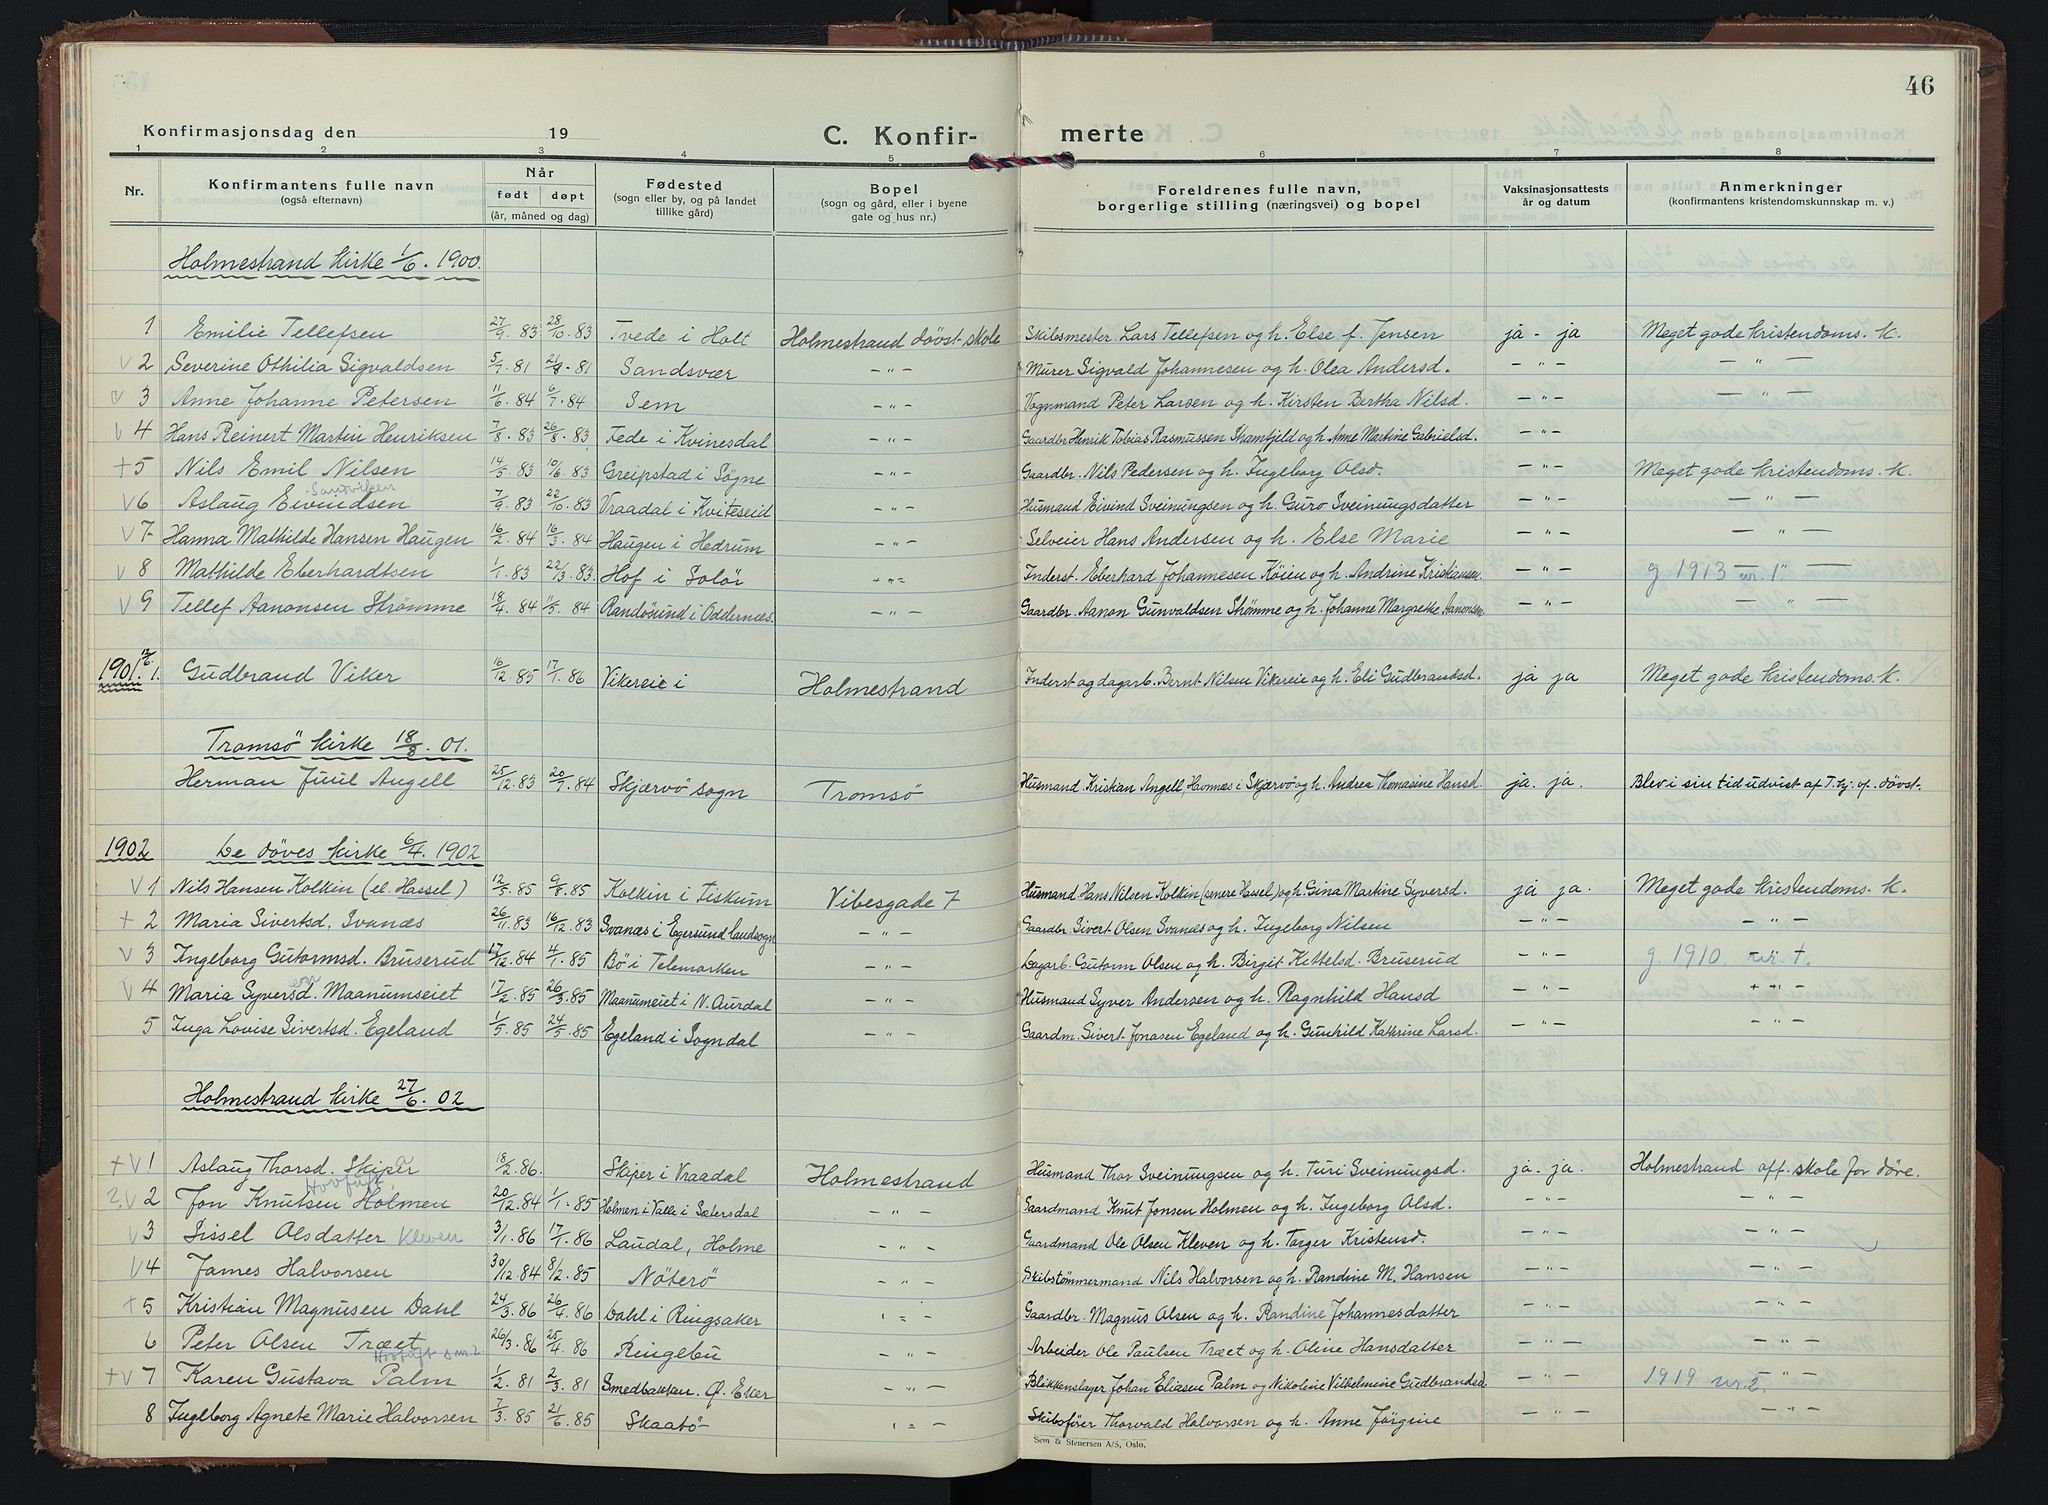 46
Konfirmasjonsdag den 19
C. Konfir- merte
1 2 3 4 5 6 7 8
Nr. Konfirmantens fulle navn (også efternavn) Når født døpt (år, måned og dag) Fødested (sogn eller by, og på landet tillike gård) Bopel (sogn og gård, eller i byene gate og hus nr.) Foreldrenes fulle navn, borgerlige stilling (næringsvei) og bopel Vaksinasjonsattests år og datum Anmerkninger (konfirmantens kristendomskunnskap m. v.)
Holmestrand kirke 1/6. 1900.
1 Emilie Tellefsen 27/9. 83 28/10. 83 Tvede i Holt Holmestrand døvst. skole Skibsmester Lars Tellefsen og h. Else f. Jensen ja - ja Meget gode kristendoms. k.
V 2 Severine Othilia Sigvaldsen 5/7. 81 21/8 - 81 Sandsvær - " - Murer Sigvald Johannesen og h. Olea Andersd. - " - - " -
V 3 Anne Johanne Petersen 11/6. 84 6/7. 84 Sem - " - Vognmand Peter Larsen og h. Kirsten Bertha Nilsd. - " - - " -
V 4 Hans Reinert Martin Henriksen 7/8. 83 26/8. 83 Fede i Kvinesdal - " - Gaardbr Henrik Tobias Rasmussen og h. Anne Martine Gabrielsd. - " -
+ 5 Nils Emil Nilsen 14/5. 83 10/6. 83 Greipstad i Søgne - " - Gaardbr. Nils Pedersen og h. Ingeborg Olsd. - " - Meget gode kristendoms. k.
V 6 Aslaug Eivindsen Sandviken 7/9. 83 22/10. 83 Vraadal i Kviteseid - " - Husmand Eivind Sveinungsen og h. Guro Sveinungsdatter - " - - " -
V 7 Hanna Mathilde Hansen Haugen 16/2. 84 16/3. 84 Haugen i Hedrum - " - Selveier Hans Andersen og h. Else Marie - " - - " -
V 8 Mathilde Eberhardtsen 1/1. 83 22/3. 83. Hof i Solør - " - Inderst. Eberhard Johannesen Köien og h. Andrine Kristiansen. - " - g 1913 nr. 1. - " -
V 9 Tellef Aanonsen Strømme 18/4. 84 11/5. 84 Randösund i Oddernæs. - " - Gaardbr. Aanon Gunvaldsen Stømme og h. Johanne Margrethe Aanonsen - " - - " -
1901. 1. Gudbrand Viker 16/12. 85 17/1. 86 Vikereie i Holmestrand Inderst og dagarb. Bernt Nilsen Vikereie og h. Eli Gudbrandsd. ja ja Meget gode kristendoms. k.
Tromsö kirke 18/8. 01.
Herman Juul Angell 25/12. 83 20/7. 84 Skjærvö sogn Tromsö Husmand Kristian Angell, Havnnes i Skjærvö og h. Andrea Thomasine Hansd. ja. ja. Blev i sin tid udvist af T.hj. of. døvst.
1902 De döves kirke 6/4. 1902
V 1 Nils Hansen Kolkin (el. Hassel) 12/5. 85 9/8. 85 Kolkin i Fiskum Vibesgade 7 Husmand Hans Nilsen Kolkin (senere Hassel) og h. Gina Martine Syversd. ja ja. Meget gode kristendoms. k.
+ 2 Maria Sivertsd. Svanæs 26/11. 83 16/12. 83 Svanæs i Egersund landsogn - " - Gaardbr Sivert Olsen Svanæs og h. Ingeborg Nilsen - " - - " -
V 3 Ingeborg Gutormsd. Bruserud 17/12. 84 4/1. 85 Bö i Telemarken - " - Dagarb. Gutorm Olsen og h. Birgit Kittelsd. Bruserud - " - g. 1910. nr. 7.
V 4 Maria Syversd. Maanumseiet 17/2. 85 26/3. 85 Maanumeiet i N. Aurdal - " - Husmand Syver Andersen og h. Ragnhild Hansd - " - - " -
5 Inga Lovise Sivertsd. Egeland 1/5. 85 24/5. 85 Egeland i Sogndal - " - Gaardm. Sivert Jonasen Egeland og h. Gunhild Kathrine Larsd. - " - - " -
Holmestrand kirke 27/6. 02
+ V 1 Aslaug Thorsd. Skiper 18/2. 86. Skiper i Vraadal Holmestrand Husmand Thor Sveinungsen og h. Turi Sveinungsd. ja. ja. Holmestrand off. skole for døve.
? V 2 Jon Knutsen Holmen Hovfuft 20/12. 84 1/1. 85 Holmen i Valle i Sætersdal - " - Gaardmand Knut Jonsen Holmen og h. Ingeborg Olsd. - " - - " -
V 3 Sissel Olsdatter Kleven 3/1. 86 17/1. 86 Laudal, Holme - " - Gaardmand Ole Olsen Kleven og h. Torger Kristensd. - " - - " -
V 4 James Halvorsen 30/12. 84 8/2. 85 Nöterö - " - Skibstömmermand Nils Halvorsen og h. Randine M. Hansen - " - - " -
+ 5 Kristian Magnusen Dahl 24/3. 86 26/4. 86 Dahl i Ringsaker - " - Gaardbr. Magnus Olsen og h. Randine Johannesdatter - " - - " -
6 Peter Olsen Træet 26/3. 86 25/4. 86 Ringebu - " - Arbeider Ole Paulsen Træet og h. Oline Hansdatter - " - - " -
+ V 7 Karen Gustava Palm Hovfuft s nr. 2. 1/2. 81 2/3. 81 Smedbakken. Ø. Eker - " - Blikkenslager Johan Eliasen Palm og Nikoline Vilhelmine Gudbrandsd - " - 1919 nr. 2. - " -
8 Ingeborg Agnete Marie Halvorsen 7/3. 85 21/6. 85 Skaatö - " - Skibsfører Thorvald Halvorsen og h. Anne Jörgine - " - - " -
Sem & Stenersen A/S, Oslo.